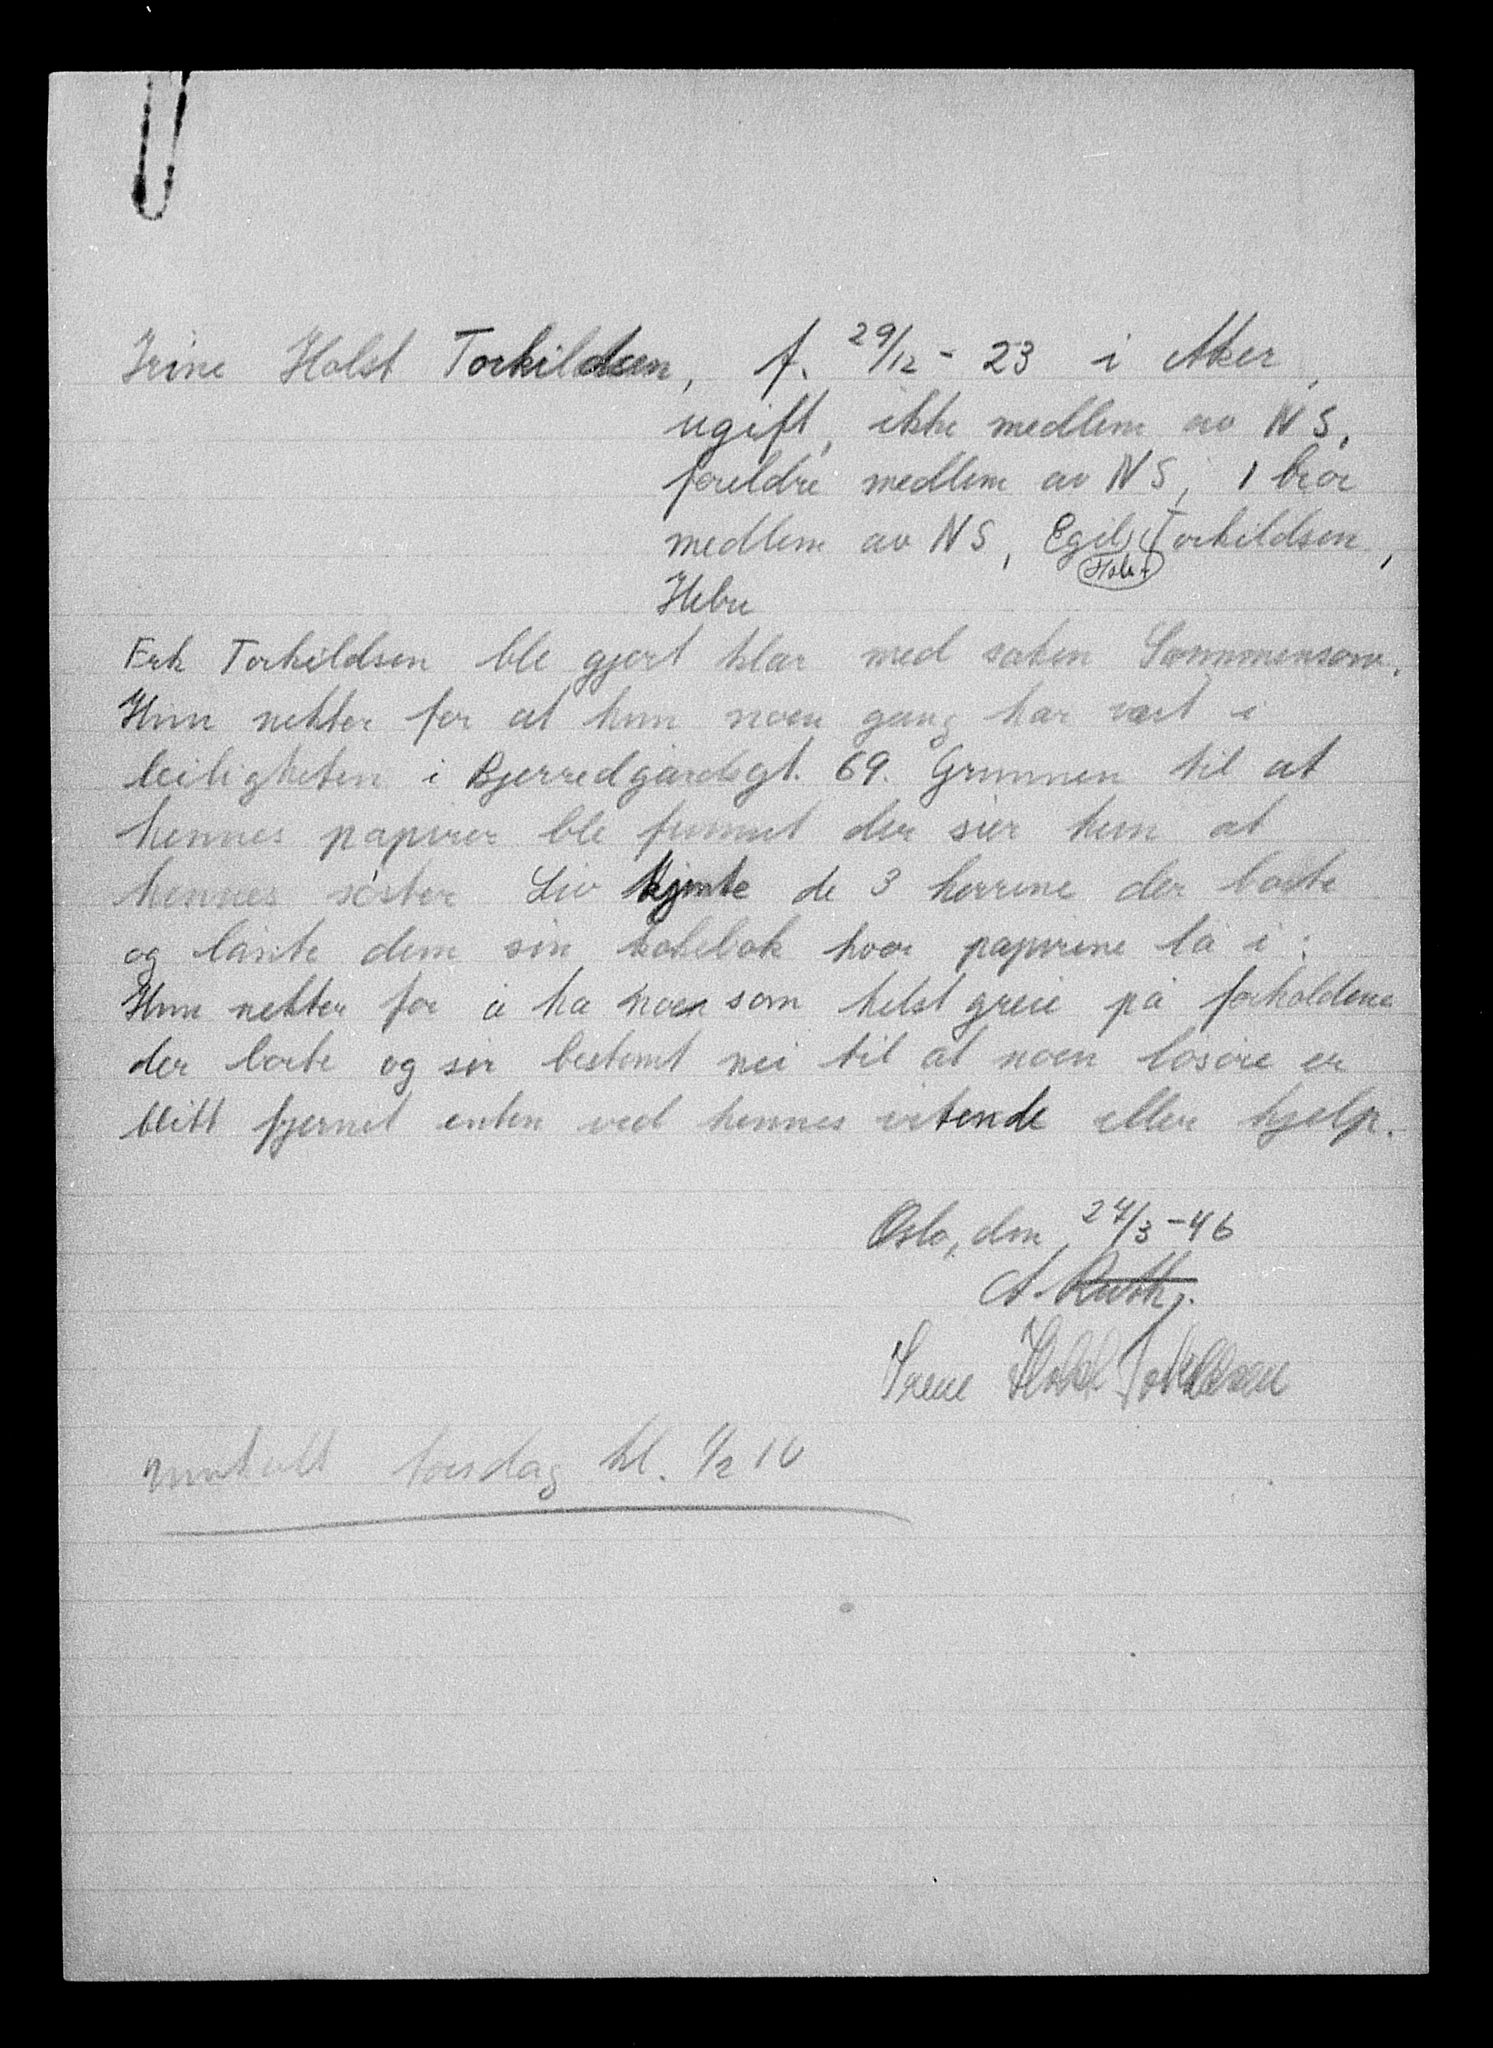 Irine Holst Torkildsen, f. 29/12 - 23 i Aker,
ugift, ikke medlem av NS,
foreldre medlem av NS, 1 bror
medlem av NS, Egil Torkildsen,
Holst
Frk Torkildsen ble gjort klar med saken
Hun nekter for at hun noen gang har vært i
leiligheten i Bjerredgårdsgt. 69. Grunnen til at
hennes papirer ble funnet der sier hun at
hennes söster Liv kjente de 3 herrene der borte
og lånte dem sin notebok hvor papirene lå i.
Hun nekter for å ha noen som helst greie på forholdene
der borte og sier bestemt nei til at noen lösöre er
blitt fjernet enten ved hennes vitende eller hjelp.
Oslo, den 27/3 - 46
Irene Holst Torkildsen
torsdag kl. 1/2 10